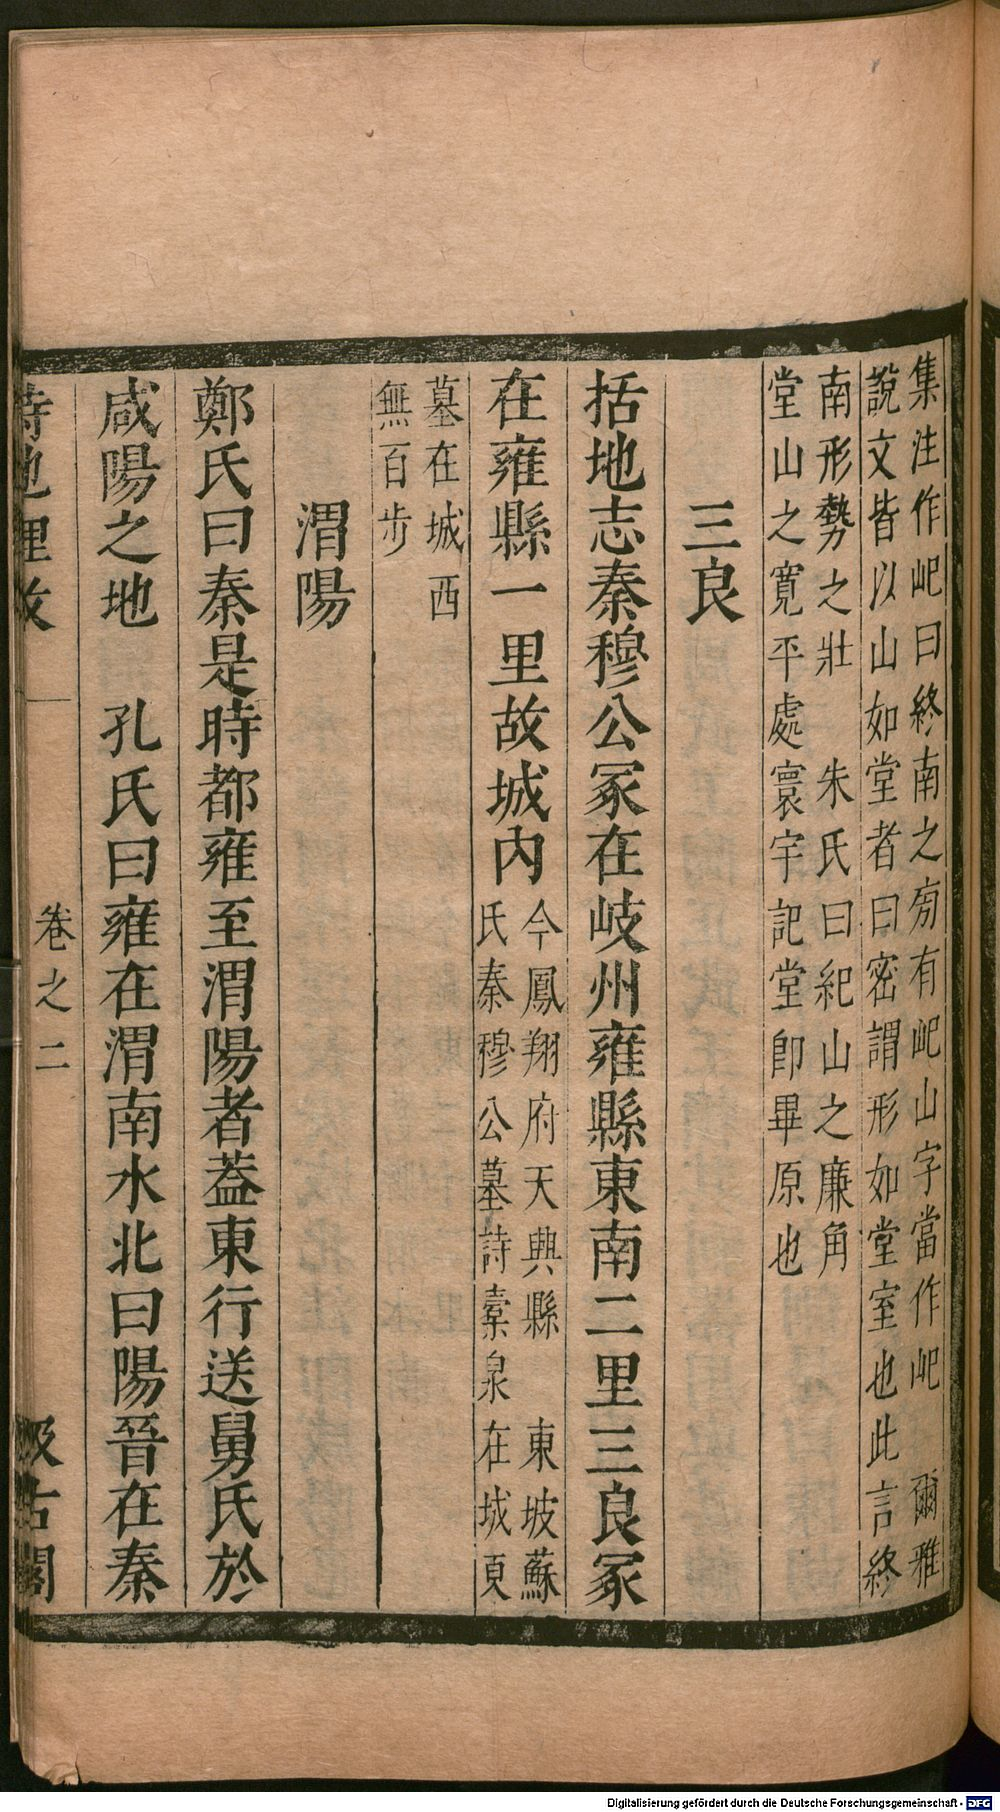 集注作𡵆曰終南之㫄有𡵆山字當作𡵆　爾雅
說文皆以山如堂者曰密謂形如堂室也此言終
南形勢之壯　朱氏曰紀山之廉角
堂山之寬平處寰宇記堂卽畢原也
三良
括地志秦穆公冢在岐州雍縣東南二里三良冢
在雍縣一里故城內
今鳳翔府天興縣　東坡蘇
氏秦穆公墓詩橐泉在城東
墓在城西
無百步
渭陽
鄭氏曰秦是時都雍至渭陽者葢東行送舅氏於
咸陽之地　孔氏曰雍在渭南水北曰陽晉在秦
詩地理攷　卷之二　汲古閣
Digitalisierung gefördert durch die Deutsche Forschungsgemeinschaft - DFG